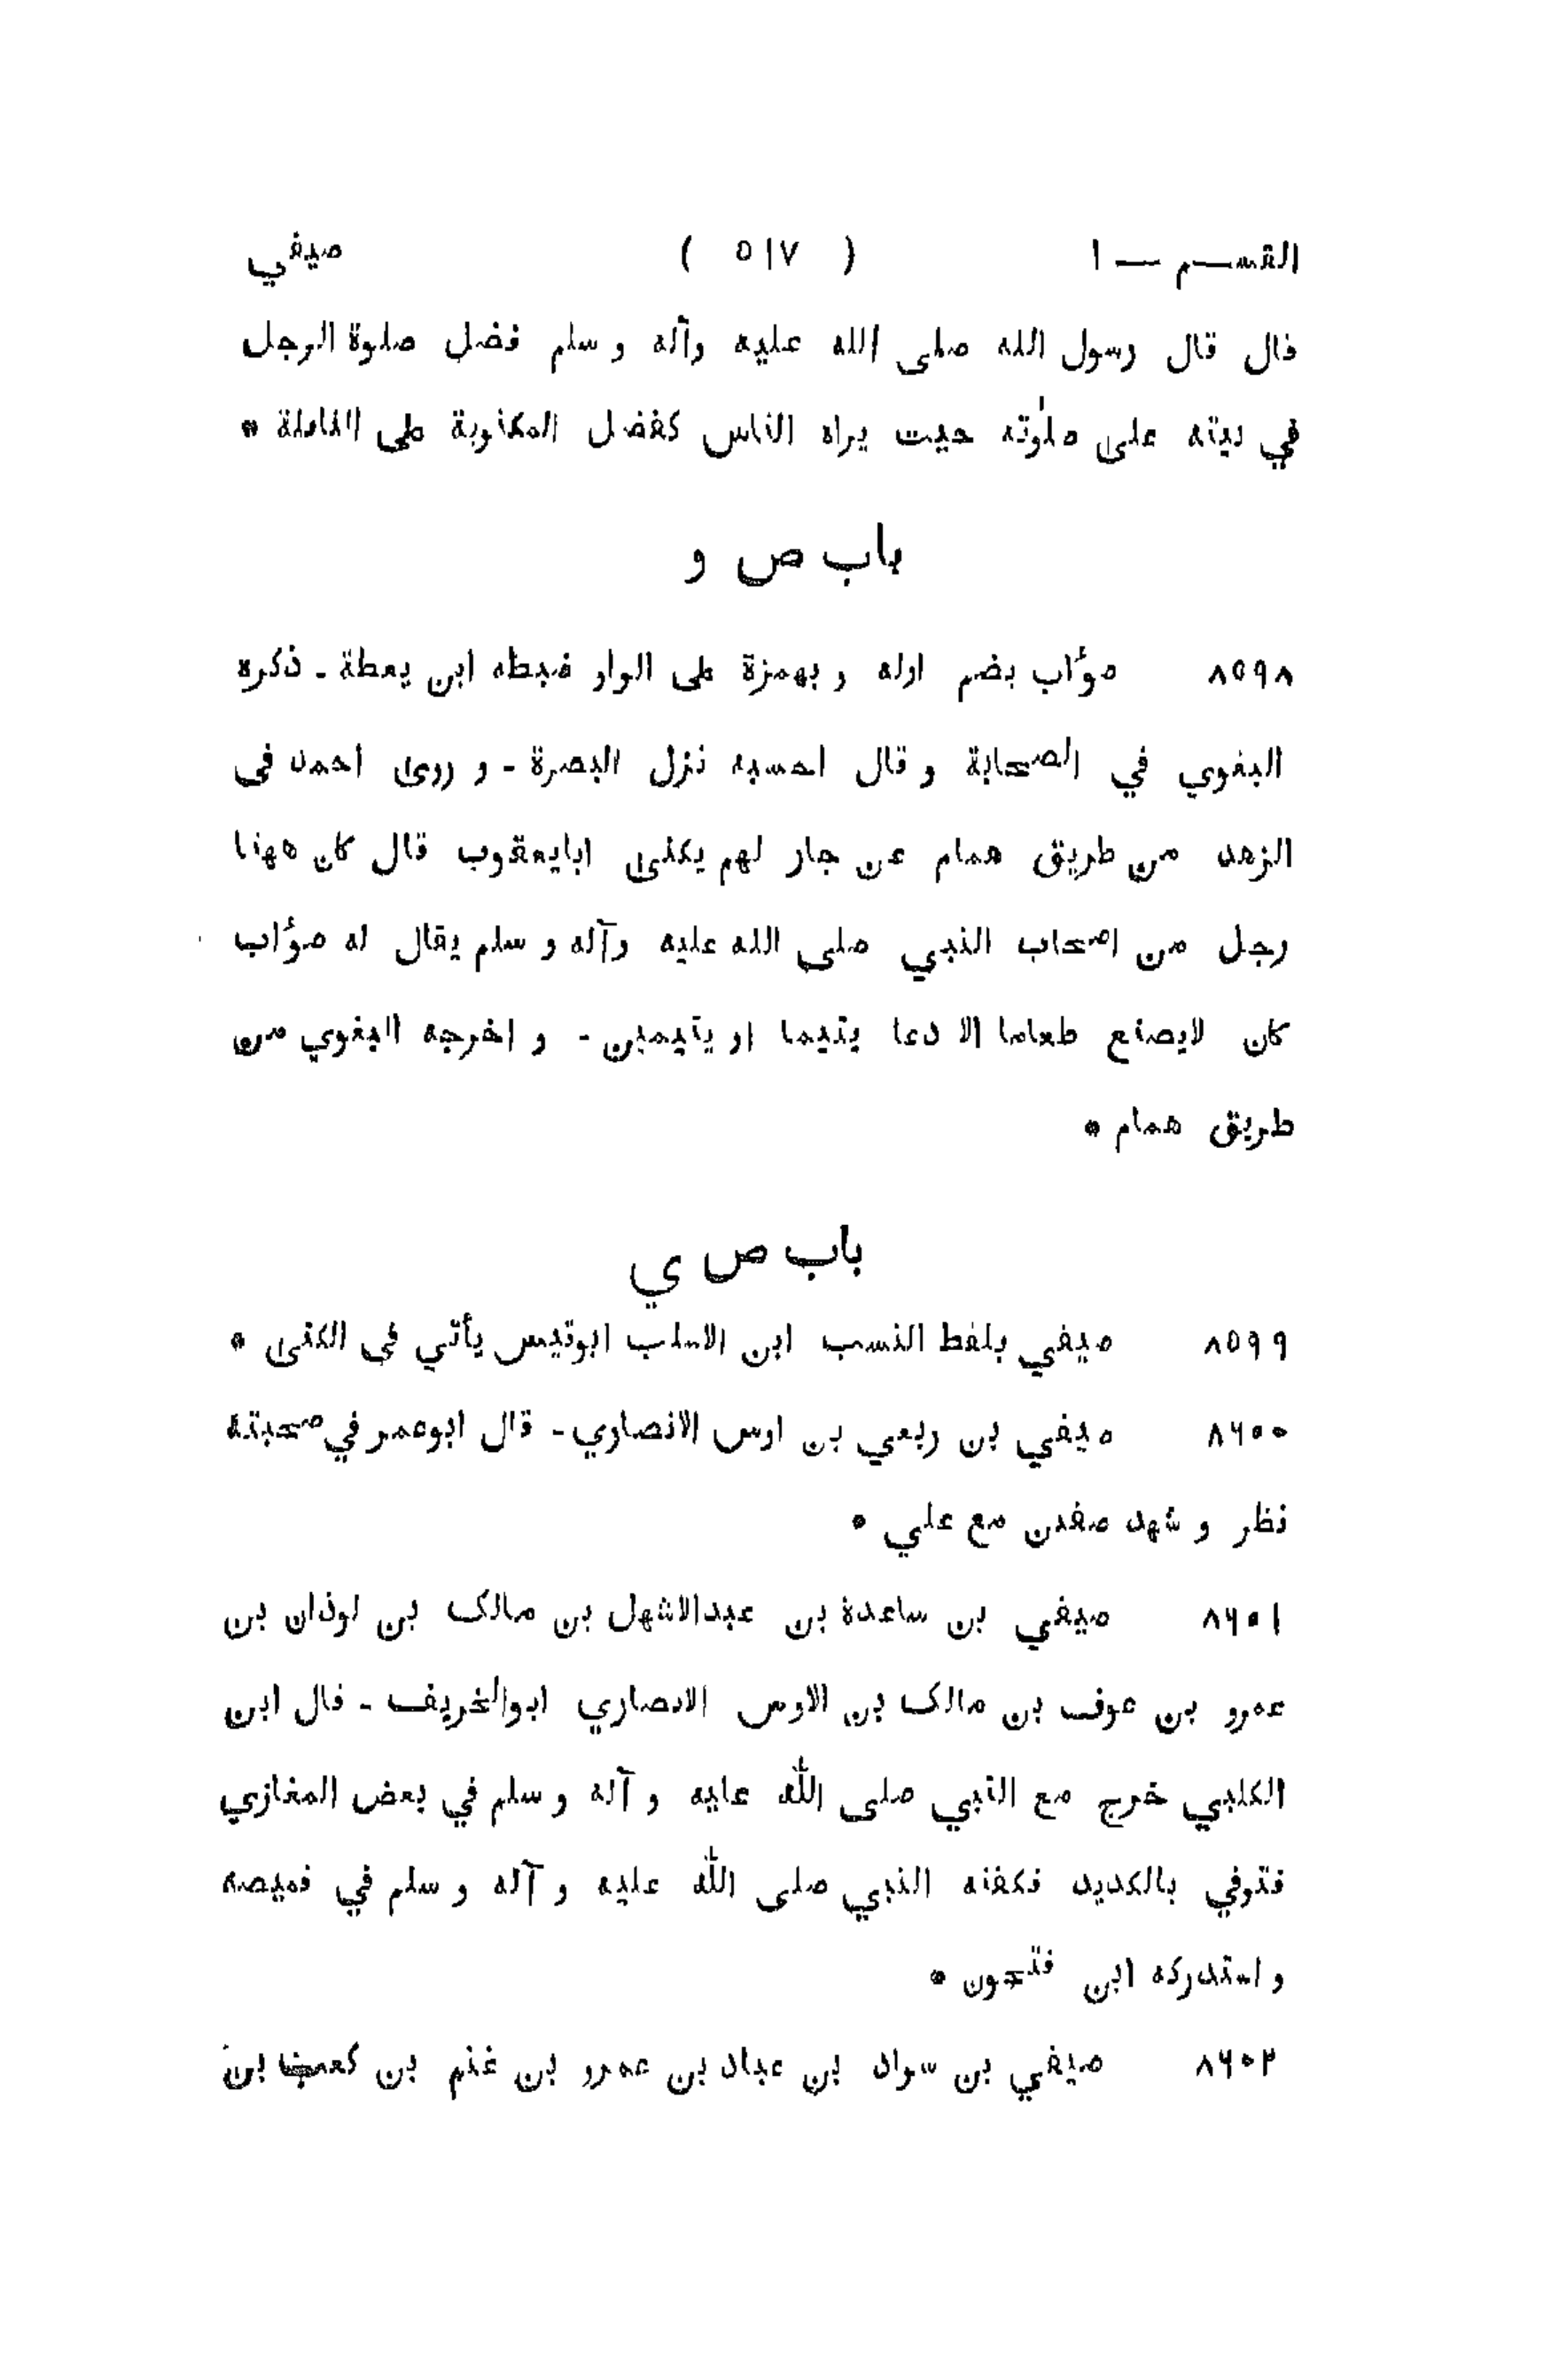 القسم — ١ ( ٥١٧ ) صيفي
قال قال رسول الله صلى الله عليه وآله و سلم فضل صلوة الرجل
في بيته على صلوته حيث يراه الناس كفضل المكتوبة على النافلة *
باب ص و
٨٥٩٨ صؤاب بضم اوله و بهمزة على الواو ضبطه ابن يقظة - ذكره
البغوي في الصحابة و قال احسبه نزل البصرة - و روى احمد فى
الزهد من طريق همام عن جار لهم يكنى ابايعقوب قال كان ههنا
رجل من اصحاب النبي صلى الله عليه وآله و سلم يقال له صؤاب
كان لايصنع طعاما الا دعا يتيما او يتيمين - و اخرجه البغوي من
طريق همام *
باب ص ي
٨٥٩٩ صيفي بلفظ النسب ابن الاسلت ابوقيس يأتي فى الكنى *
٨٦٠٠ صيفي بن ربعي بن اوس الانصاري - قال ابوعمر في صحبته
نظر و شهد صفين مع علي *
٨٦٠١ صيفي بن ساعدة بن عبدالاشهل بن مالك بن لوذان بن
عمرو بن عوف بن مالك بن الاوس الانصاري ابوالخريف - قال ابن
الكلبي خرج مع النبي صلى الله عليه و آله و سلم في بعض المغازي
فتوفي بالكديد فكفنه النبي صلى الله عليه و آله و سلم في قميصه
و استدركه ابن فتحون *
٨٦٠٢ صيفي بن سواد بن عباد بن عمرو بن غنم بن كعب بن